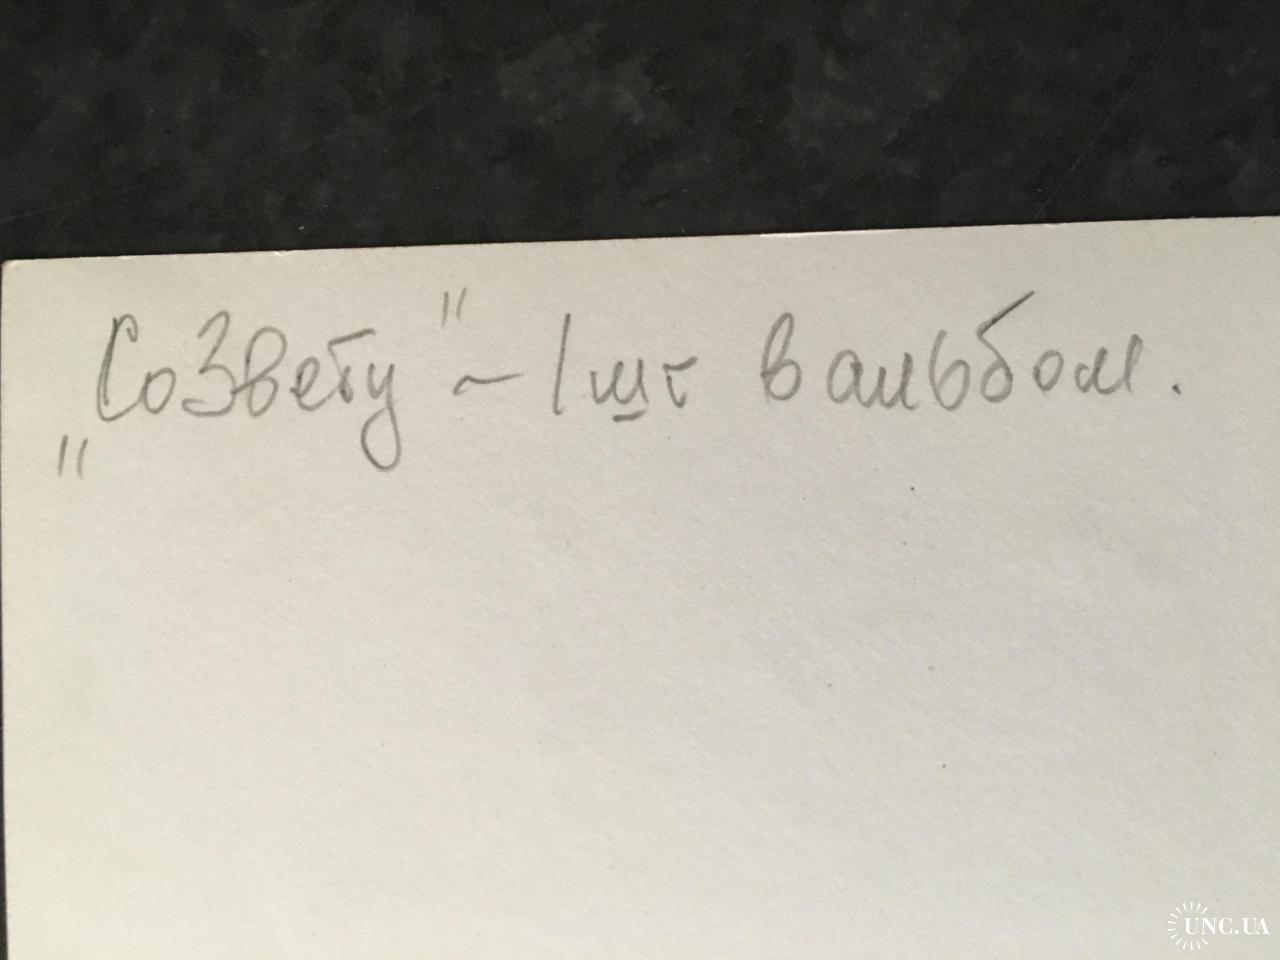 „СоЗвету" ~ 1 шт в альбом.
UNC.UA